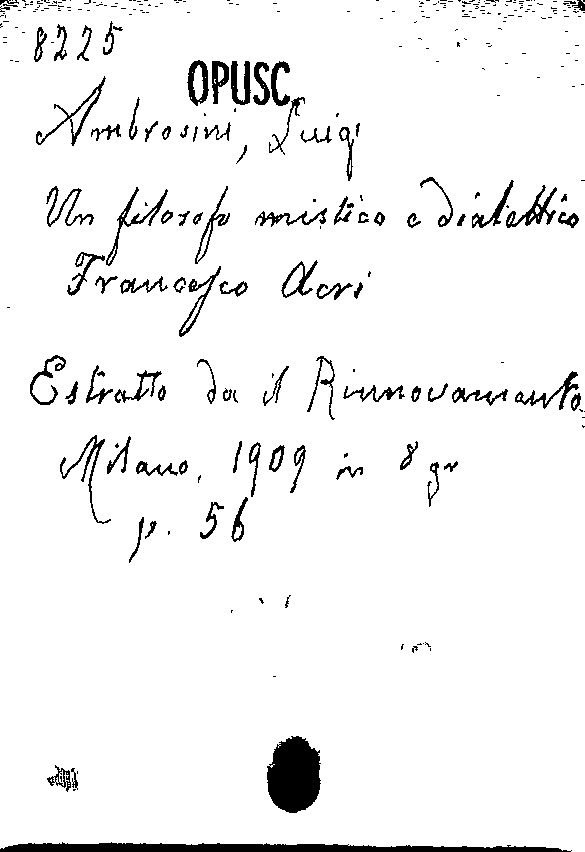 8225
OPUSC.
Ambrosini, Luigi
Un filosofo mistico e dialettico
Francesco Acri
Estratto da il Rinnovamento
Milano, 1909 in 8 gr
p. 56